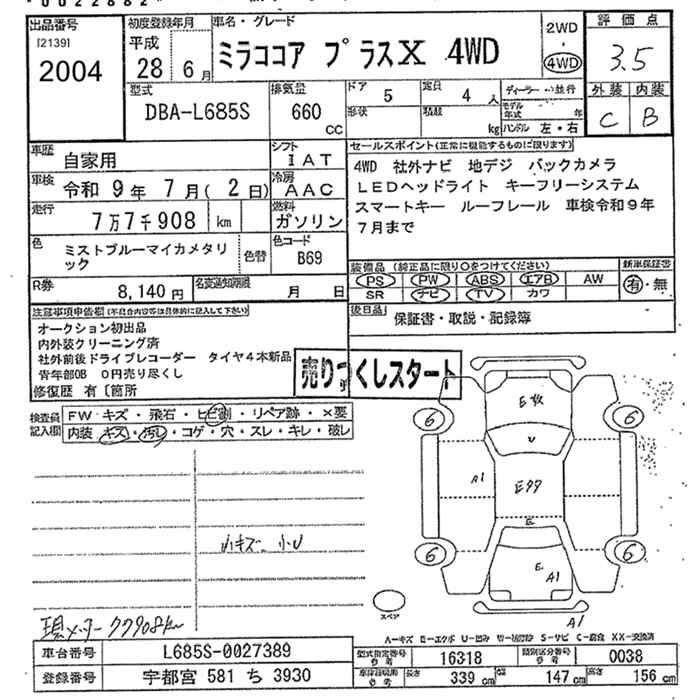 出品番号 初度登録年月 車名・グレード 2WD 評価点
[2139] 平成 ミラココア プラスX 4WD ・ 3.5
2004 28年 6月 4WD 外装 内装
型式 排気量 ドア 5 定員 4人 ディーラー・並行 C B
DBA-L685S 660 形状 積載 モデル年式 年
CC kg ハンドル 左・右
車歴 自家用 シフト IAT セールスポイント(正常に機能するものに限ります)
車検 令和 9年 7月(2日) 冷房 AAC 4WD 社外ナビ 地デジ バックカメラ
LEDヘッドライト キーフリーシステム
走行 7万7千908 km 燃料 ガソリン スマートキー ルーフレール 車検令和9年
7月まで
色 ミストブルーマイカメタリック 色替 色コード B69
装備品(純正品に限り〇をつけてください) 新車保証書
PS PW ABS エアB AW 有・無
R券 8,140円 名変通知期限 月 日 SR ナビ TV カワ
注意事項申告欄(不具合内容等は具体的に記入して下さい) 後日品 保証書・取説・記録簿
オークション初出品
内外装クリーニング済
社外前後ドライブレコーダー タイヤ4本新品
青年部OB 0円売り尽くし
修復歴 有〔箇所
売りつくしスタート
検査員記入欄 FW キズ・飛石・ヒビ割・リペア跡・×要
内装 キズ・汚レ・コゲ・穴・スレ・キレ・破レ
6 6
U
A1 E
6 6
E A1
小キズ 小U
スペア
A1
現メーター 77908km
A－キズ E－エクボ U－凹み S－サビ C－腐食 XX－交換済
車台番号 L685S-0027389 型式指定番号 参考 16318 類別区分番号 参考 0038
登録番号 宇都宮 581 ち 3930 長さ 339 cm 幅 147 cm 高さ 156 cm